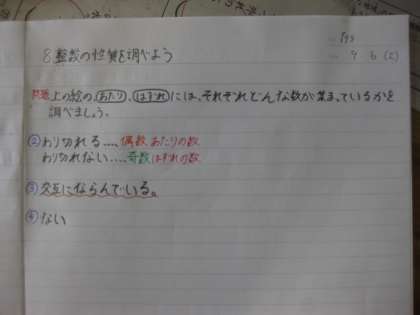 8 整数の性質を調べよう
P93
9 6 (火)
問題 上の絵の、あたり、はずれには、それぞれどんな数が集まっているかを
調べましょう。
② わり切れる…、偶数 あたりの数
わり切れない…、奇数 はずれの数
③ 交互にならんでいる。
④ ない